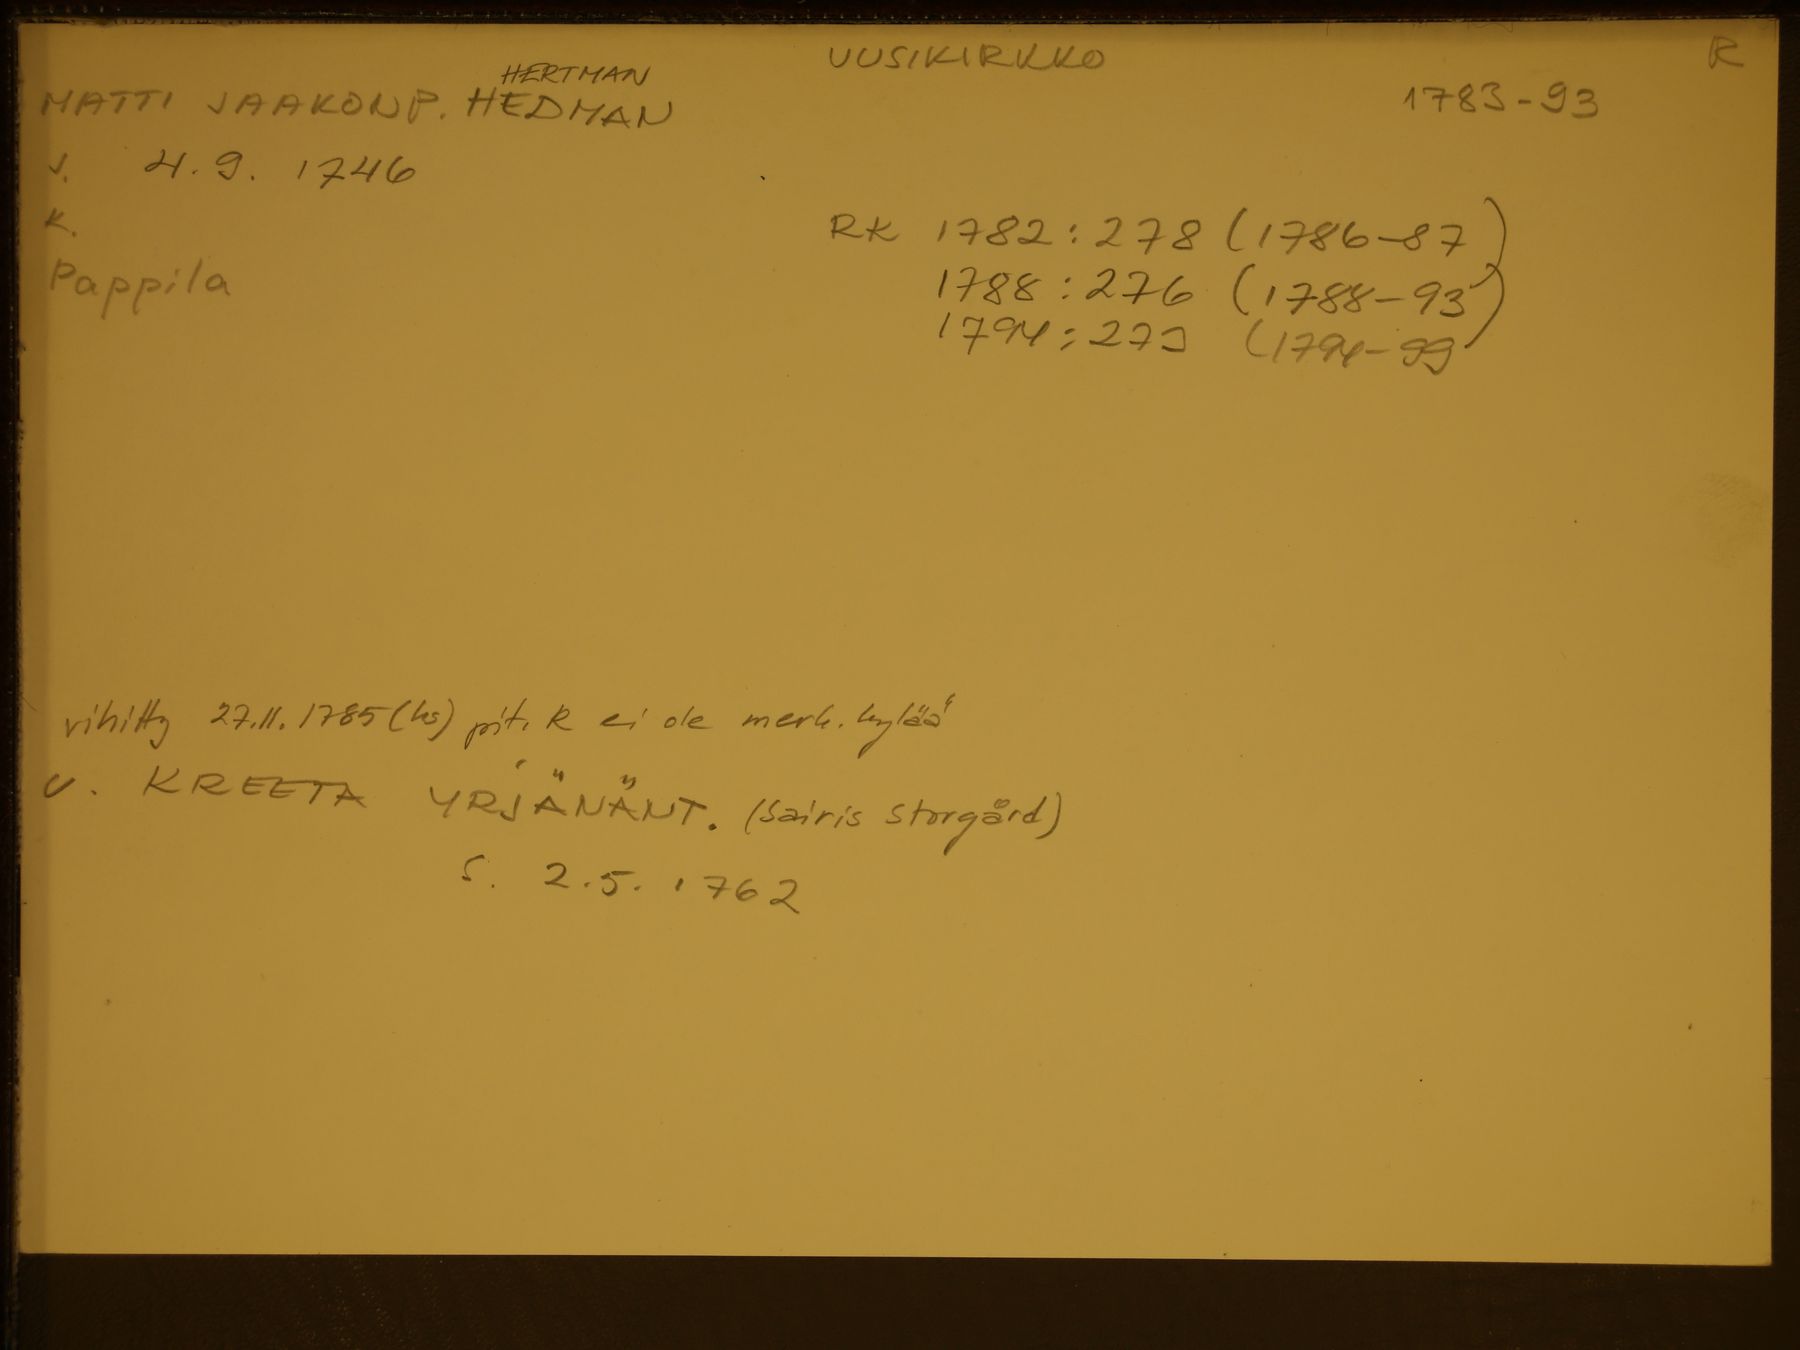 UUSIKIRKKO R
HERTMAN
MATTI JAAKONP. HEDMAN 1783-93
s. 4.9. 1746
K. RK 1782:278 (1786-87)
Pappila 1788:276 (1788-93)
1794: (1794-99)
vihitty 27.11.1785 (ks) pit. K ei ole merk. kylää
v. KREETA YRJÄNÄNT. (Sairis Storgård)
s. 2.5. 1762